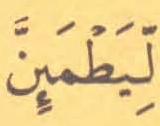 لِّيَطْمَىِٕنَّ